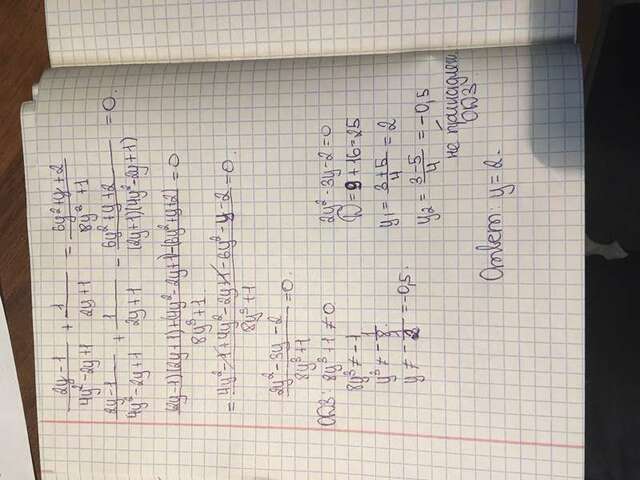 (2y-1)/(4y²-2y+1) + 1/(2y+1) = (6y²+y+2)/(8y²+1)
(2y-1)/(4y²-2y+1) + 1/(2y+1) - (6y²+y+2)/((2y+1)(4y²-2y+1)) = 0.
((2y-1)(2y+1)+(4y²-2y+1)-(6y²+y+2))/(8y³+1) = 0
= (4y²-1+4y²-2y+1-6y²-y-2)/(8y³+1) = 0.
(2y²-3y-2)/(8y³+1) = 0.
ОДЗ: 8y³+1≠0
8y³≠-1
y³≠-1/8.
y≠-1/2=-0,5.
2y²-3y-2=0
D=9+16=25
y₁=(3+5)/4=2
y₂=(3-5)/4=-0,5
не принадлеж.
ОДЗ.
Ответ: y=2.